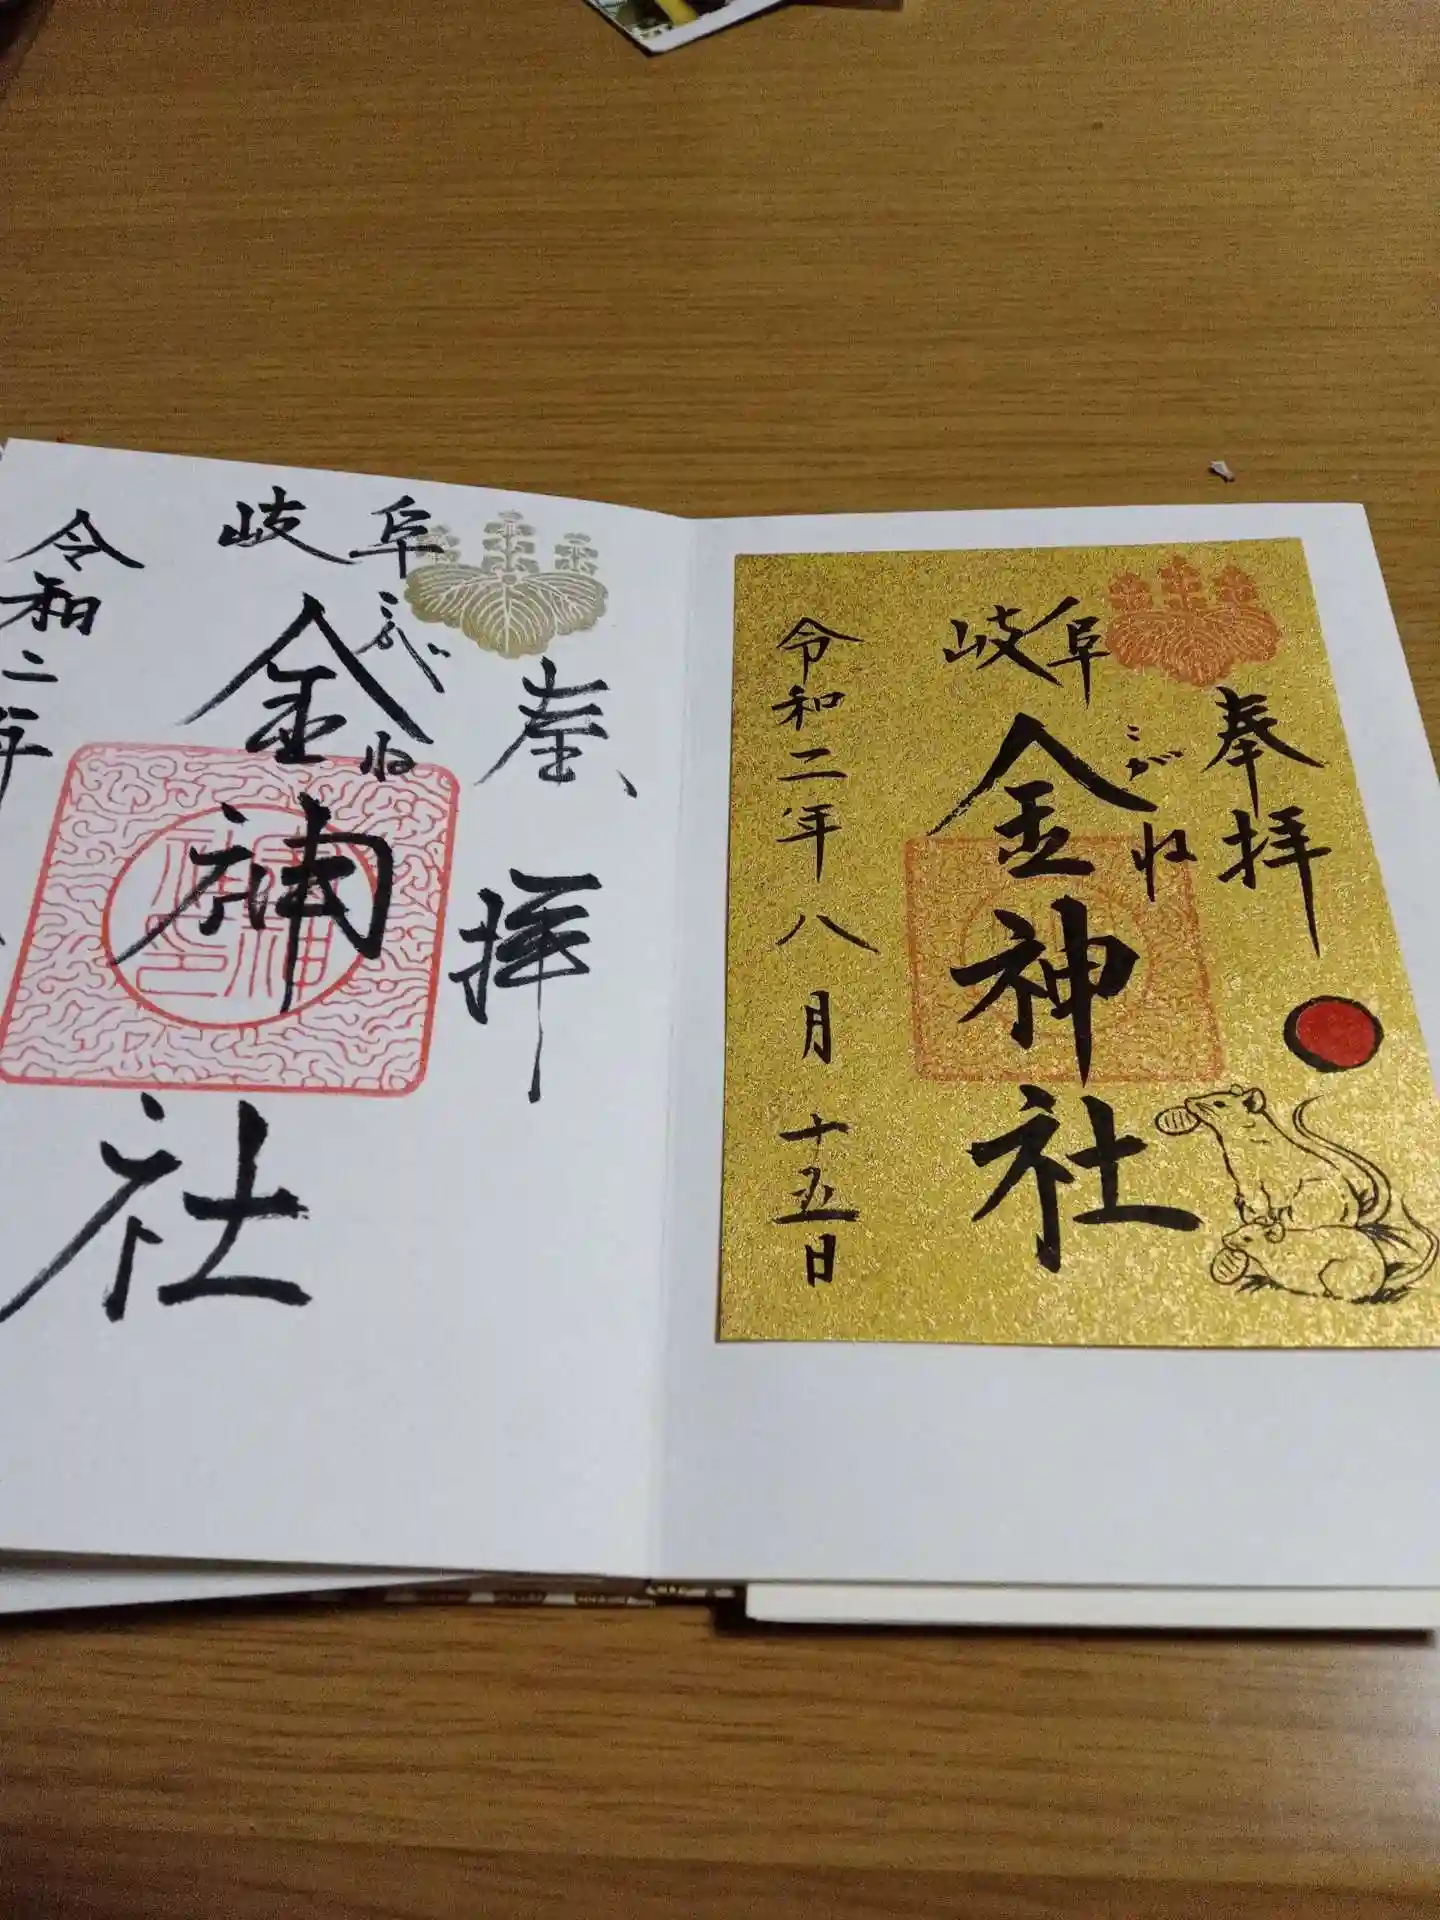 奉拝
岐阜
金神社
こがね
令和二年八月十五日
岐阜
金神社
こがね
奉拝
令和二年